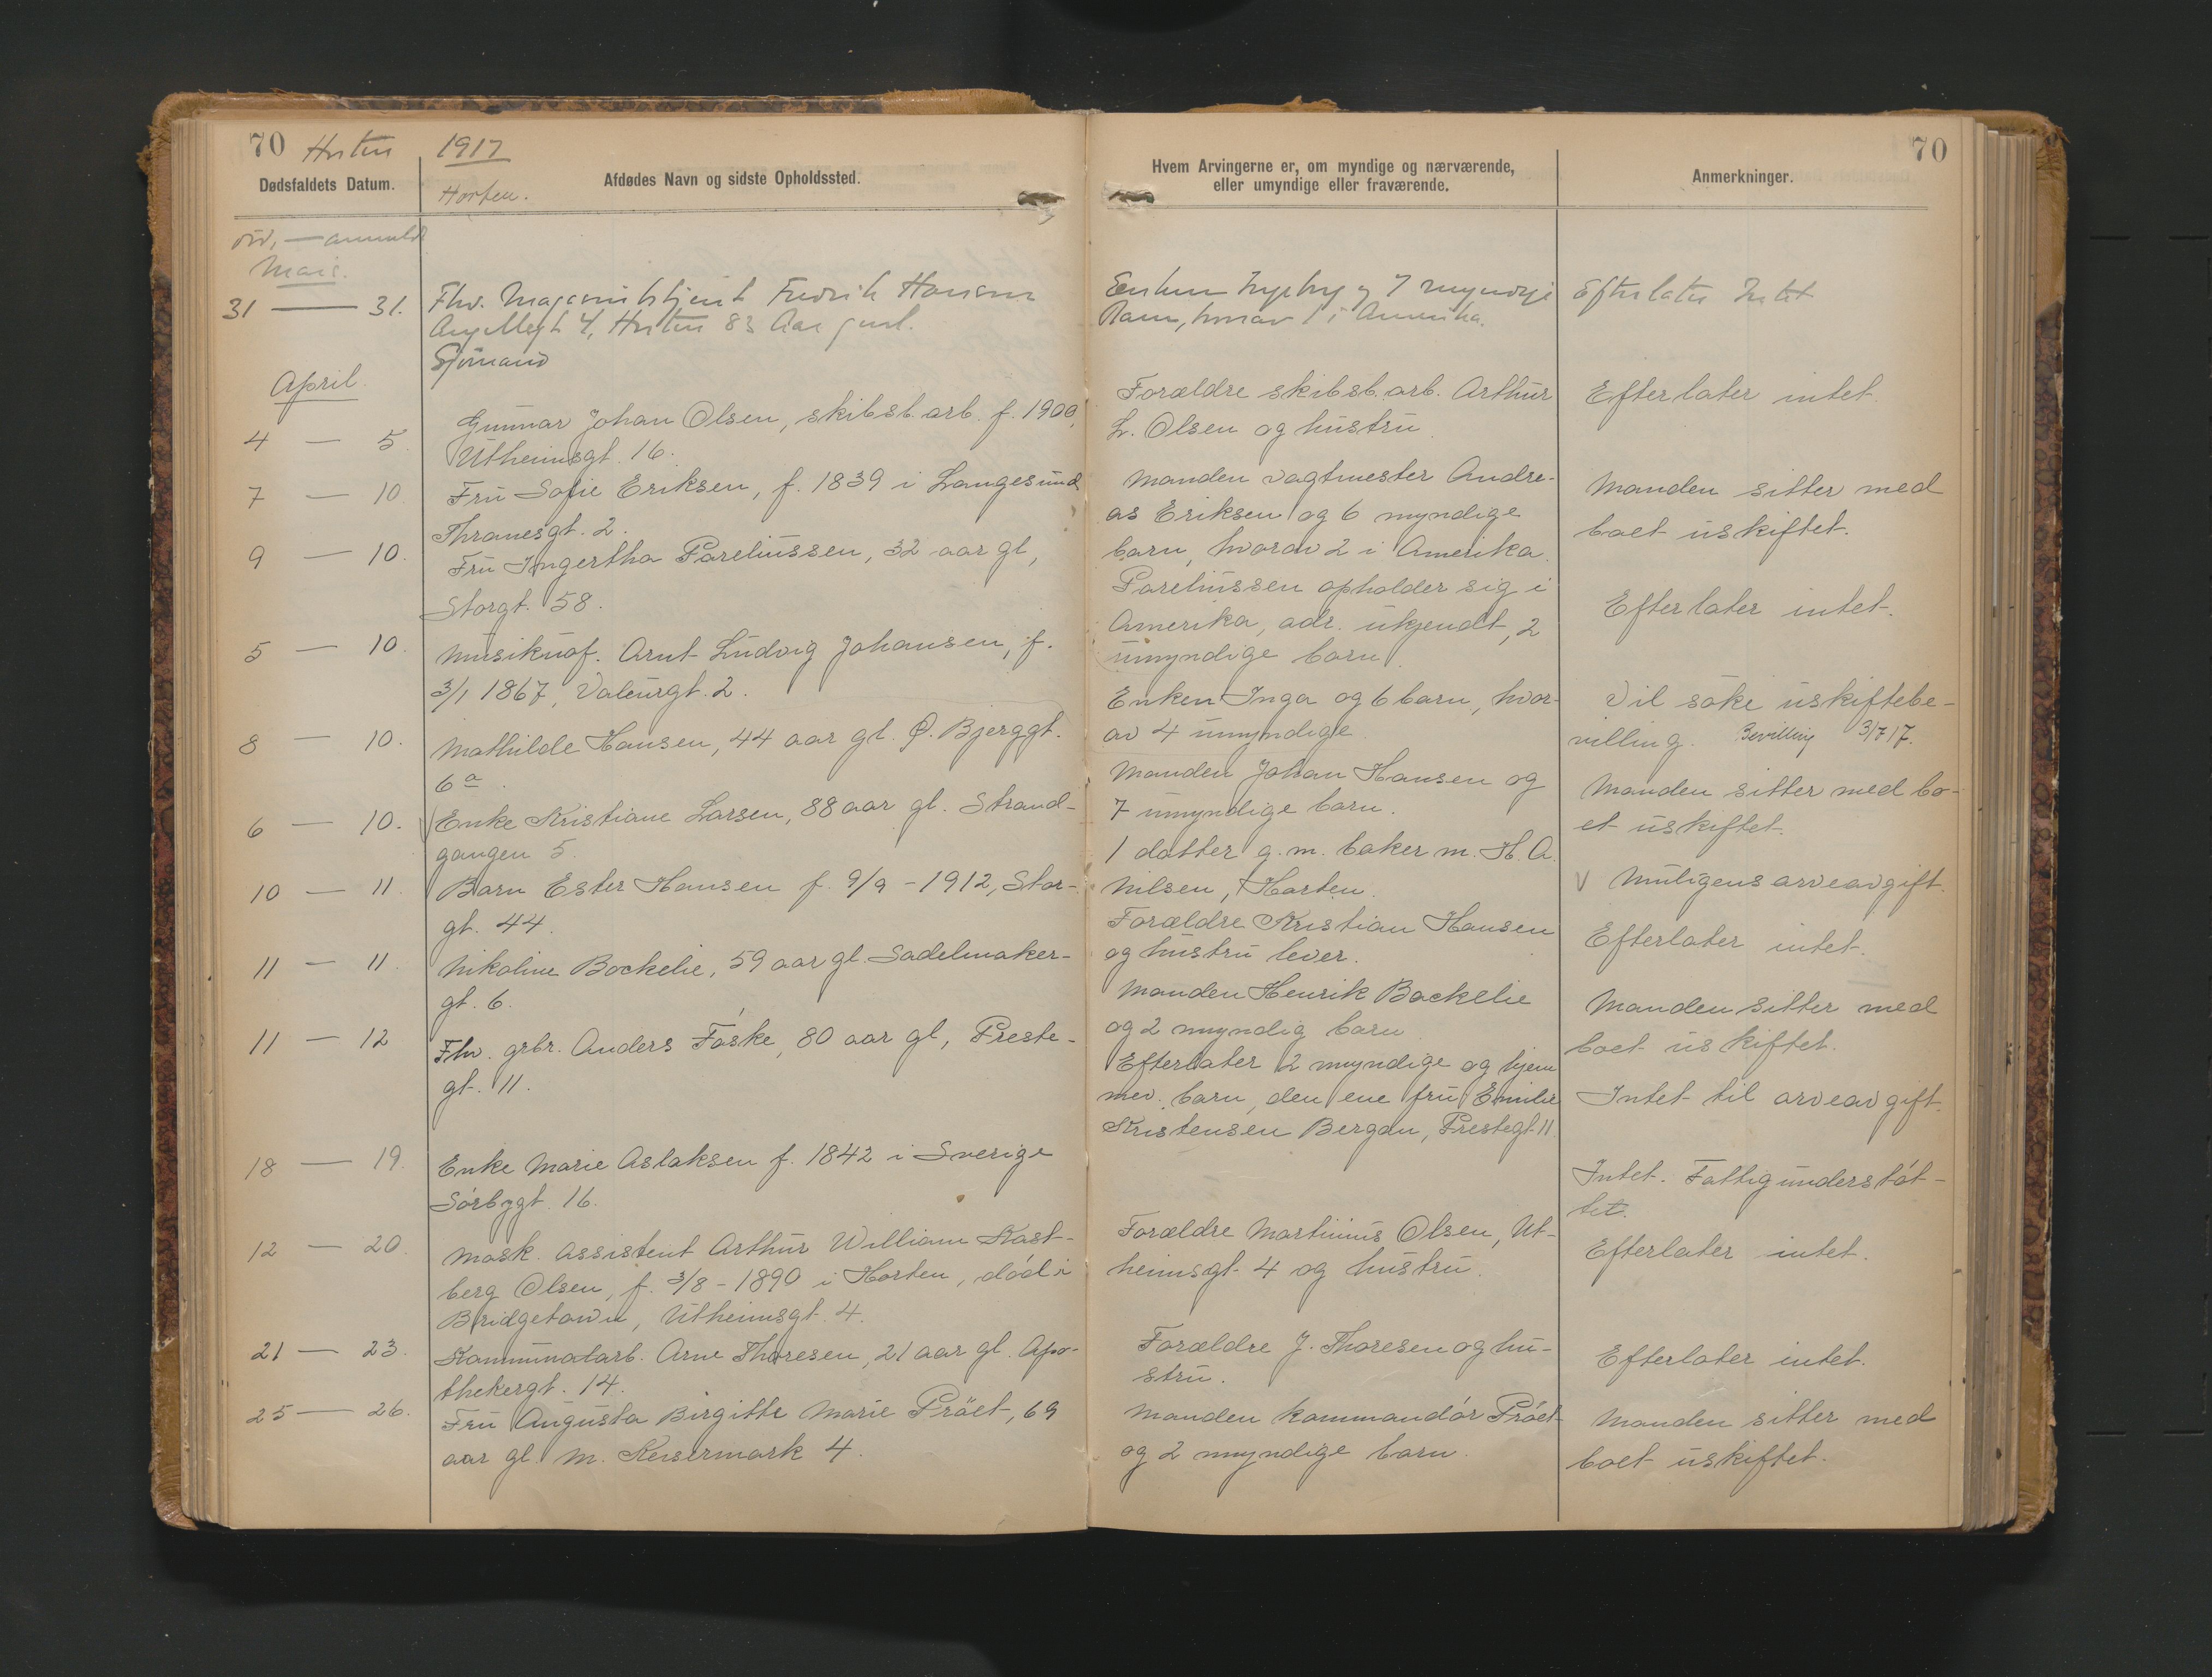 70 Horten 1917
Dødsfaldets Datum.
Horten.
Afdødes Navn og sidste Opholdssted.
Hvem Arvingerne er, om myndige og nærværende,
eller umyndige eller fraværende.
Anmerkninger.
70
død, — anmeldt
Mars.
31 — 31.
Fhv. Magasinbetjent Fredrik Hansen
4, Horten 83 Aar gml.
Sjömand
Enken og 7 myndige
Barn, hvorav 1 i Amerika.
Efterlater Intet
April.
4 — 5
Gunnar Johan Olsen, skibsb. arb. f. 1900,
Utheimsgt. 16.
Forældre skibsb. arb. Arthur
L. Olsen og hustru
Efterlater intet.
7 — 10.
Fru Sofie Eriksen, f. 1839 i Langesund
Thranesgt. 2.
Manden vagtmester Andre-
as Eriksen og 6 myndige
barn, hvorav 2 i Amerika.
Manden sitter med
boet uskiftet.
9 — 10.
Fru Ingertha Pareliussen, 32 aar gl,
Storgt. 58.
Pareliussen opholder sig i
Amerika, adr. ukjendt, 2
umyndige barn.
Efterlater intet.
5 — 10.
Musikuof. Arnt Ludvig Johansen, f.
3/1 1867, Valeurgt. 2.
Enken Inga og 6 barn, hvor-
av 4 umyndige
Vil søke uskiftebe-
villing. Bevilling 3/7 17.
8 — 10.
Mathilde Hansen, 44 aar gl. Ø. Bjerggt.
6a.
Manden Johan Hansen og
7 umyndige barn.
Manden sitter med bo-
et uskiftet.
6 — 10.
Enke Kristiane Larsen, 88 aar gl. Strand-
gangen 5.
1 datter g. m. baker m. H. A.
Nilsen, Horten.
V Muligens arveavgift.
10 — 11.
Barn Ester Hansen f. 9/9 - 1912, Stor-
gt. 44.
Forældre Kristian Hansen
og hustru lever.
Efterlater intet.
11 — 11.
Nikoline Bockelie, 59 aar gl. Sadelmaker-
gt. 6.
Manden Henrik Bockelie
og 2 myndig barn
Manden sitter med
boet uskiftet.
11 — 12
Fhv. grbr. Anders Faske, 80 aar gl, Preste-
gt. 11.
Efterlater 2 myndige og hjem
mev. barn, den ene fru Emilie
Kristensen Bergan, Prestegt. 11.
Intet til arveavgift.
18 — 19.
Enke Marie Aslaksen f. 1842 i Sverige
Sörbygt. 16.
Intet. Fattigunderstöt-
tet.
12 — 20.
Mask. assistent Arthur William Kast-
berg Olsen, f. 3/8 - 1890 i Horten, död i
Bridgetown, Utheimsgt. 4.
Forældre Martinius Olsen, Ut-
heimsgt. 4 og hustru.
Efterlater intet.
21 — 23.
Kommunalarb. Arne Thoresen, 21 aar gl. Apo-
thekergt. 14.
Forældre J. Thoresen og hu-
stru.
Efterlater intet.
25 — 26.
Fru Augusta Birgitte Marie Pröet, 69
aar gl. M. Keisermark 4.
Manden kommandör Pröet
og 2 myndige barn.
Manden sitter med
boet uskiftet.